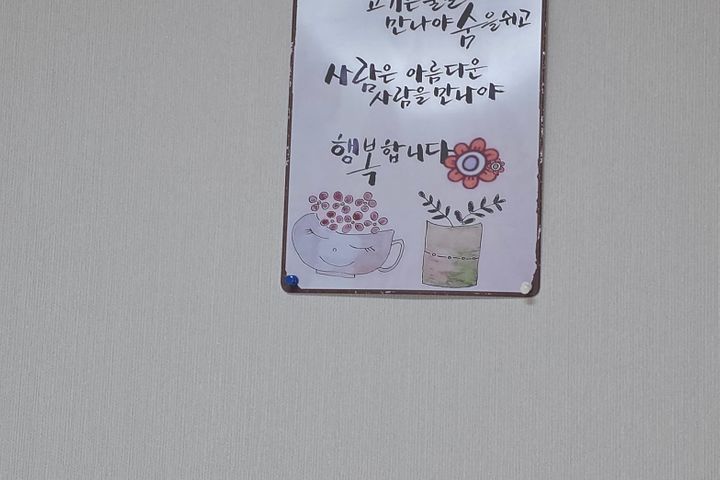 고기는 물을
만나야 숨을쉬고
사람은 아름다운
사람을만나야
행복합니다